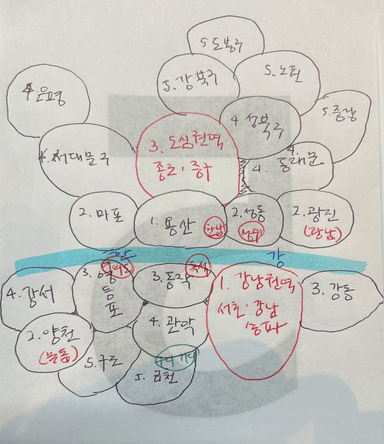 5 도봉구
5. 강북구
5. 노원
4 은평
5. 중랑
4. 성북구
4. 서대문구
3. 도심권역
종로 · 중구
4. 동대문
2. 마포
1. 용산
한남
2. 성동
성수
2. 광진
(광남)
한 강
4. 강서
3. 영등포
여의도
3. 동작
흑석
1. 강남권역
서초 · 강남
송파
3. 강동
2. 양천
(목동)
4. 관악
5. 구로
5. 금천